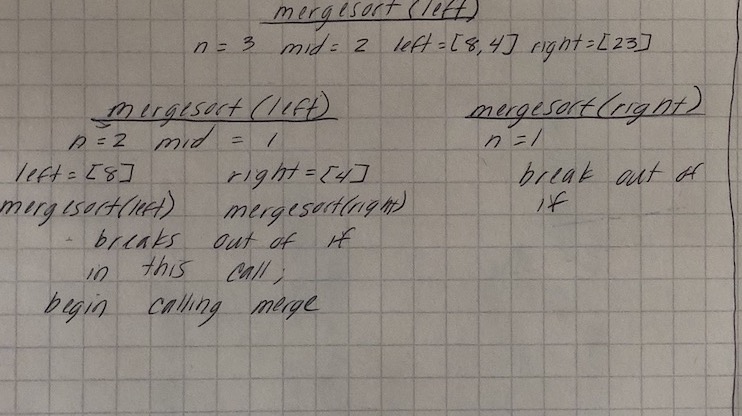 mergesort(left)
n = 3 mid = 2 left = [8,4] right = [23]
mergesort(left)
n = 2 mid = 1
left = [8] right = [4]
mergesort(left) mergesort(right)
breaks out of if
in this call;
begin calling merge
mergesort(right)
n = 1
break out of
if